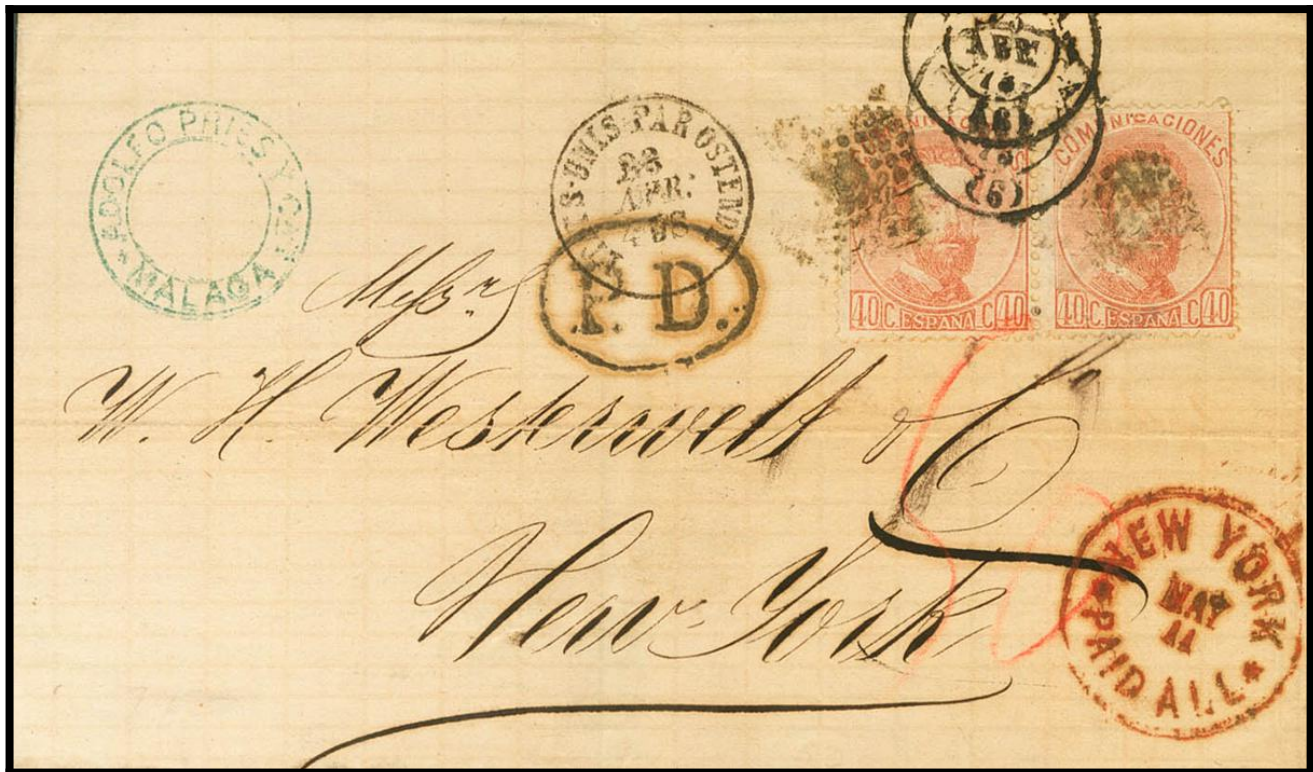 ADOLFO PRIES Y CA
MALAGA
ES-UNIS PAR OSTEND
23
APR.
P. D.
ABR
(6)
COMUNICACIONES
40 C. ESPAÑA C 40
40 C. ESPAÑA C 40
Messrs
W. H. Westerwelt & Co
New York
NEW YORK
MAY
11
PAID ALL